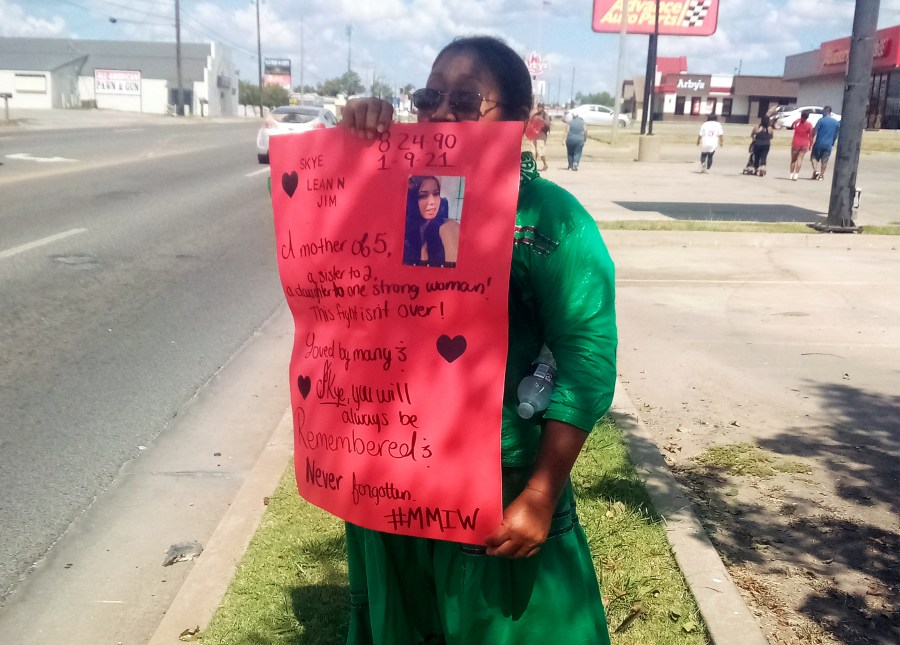 Advance
Auto Parts
Arby's
ALL AMERICAN
PAWN & GUN
8 24 90
1-9-21
SKYE
LEANN
JIM
A mother of 5,
a sister to 2,
a daughter to one strong woman!
This fight isn't over!
Loved by many &
Skye, you will
always be
Remembered &
Never forgotten.
#MMIW